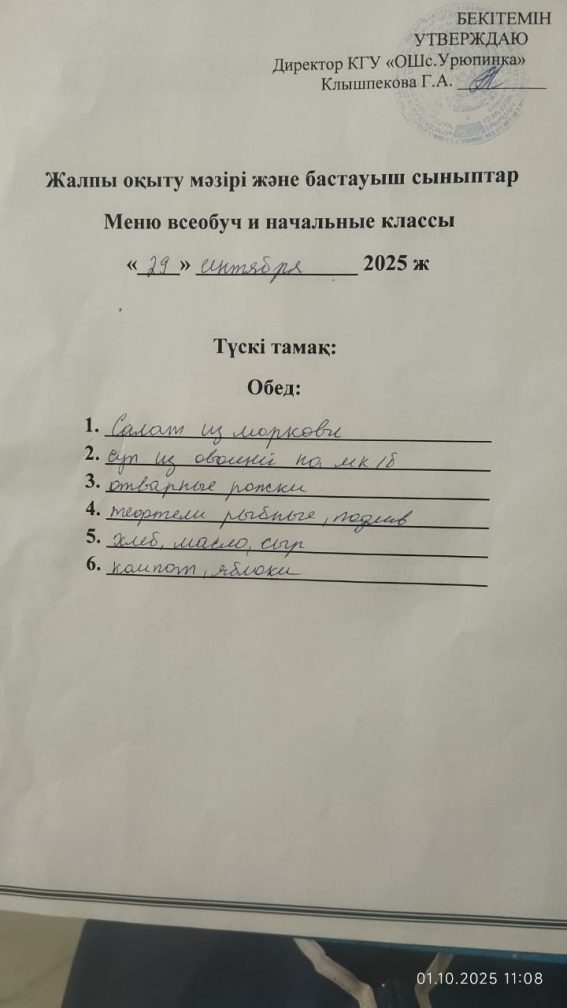 БЕКІТЕМІН
УТВЕРЖДАЮ
Директор КГУ «ОШс.Урюпинка»
Клышпекова Г.А.
Жалпы оқыту мәзірі және бастауыш сыныптар
Меню всеобуч и начальные классы
«29» сентября 2025 ж
Түскі тамақ:
Обед:
1. Салат из моркови
2. суп из на
3. отварные рожки
4. тефтели рыбные, подлив
5. хлеб, масло, сыр
6. компот, яблоки
01.10.2025 11:08